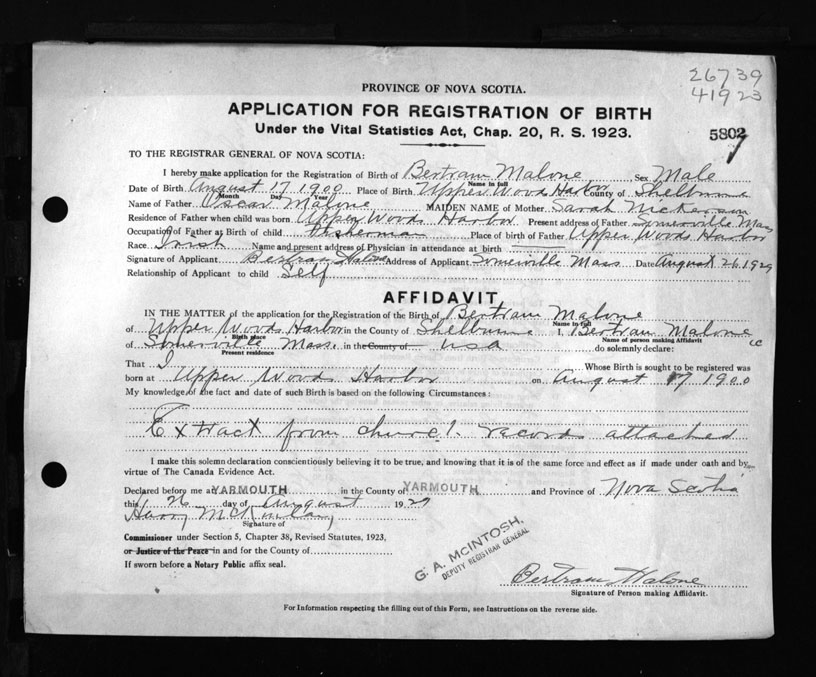 26739
41923
PROVINCE OF NOVA SCOTIA.
APPLICATION FOR REGISTRATION OF BIRTH
Under the Vital Statistics Act, Chap. 20, R. S. 1923.
5802
7
TO THE REGISTRAR GENERAL OF NOVA SCOTIA:
I hereby make application for the Registration of Birth of Bertram Malone Sex Male
Name in full
Date of Birth August 17 1900 Place of Birth Upper Woods Harbor County of Shelburne
Month Day Year
Name of Father Oscar Malone MAIDEN NAME of Mother Sarah Nickerson
Residence of Father when child was born Upper Woods Harbor Present address of Father Somerville Mass
Occupation of Father at Birth of child Fisherman Place of birth of Father Upper Woods Harbor
Race Irish Name and present address of Physician in attendance at birth
Signature of Applicant Bertram Malone Address of Applicant Somerville Mass Date August 26 1929
Relationship of Applicant to child Self
AFFIDAVIT
IN THE MATTER of the application for the Registration of the Birth of Bertram Malone
Name in full
of Upper Woods Harbor in the County of Shelburne I, Bertram Malone
Birth place Name of person making Affidavit
of Somerville Mass. in the County of USA do solemnly declare:
Present residence
That I Whose Birth is sought to be registered was
born at Upper Woods Harbor on August 17 1900
My knowledge of the fact and date of such Birth is based on the following Circumstances:
Extract from church records attached
I make this solemn declaration conscientiously believing it to be true, and knowing that it is of the same force and effect as if made under oath and by
virtue of The Canada Evidence Act.
Declared before me at YARMOUTH in the County of YARMOUTH and Province of Nova Scotia
this 26 day of August 1929
Harry
Signature of
Commissioner under Section 5, Chapter 38, Revised Statutes, 1923,
or Justice of the Peace in and for the County of
If sworn before a Notary Public affix seal.
G. A. McINTOSH,
DEPUTY REGISTRAR GENERAL
Bertram Malone
Signature of Person making Affidavit.
For Information respecting the filling out of this Form, see Instructions on the reverse side.